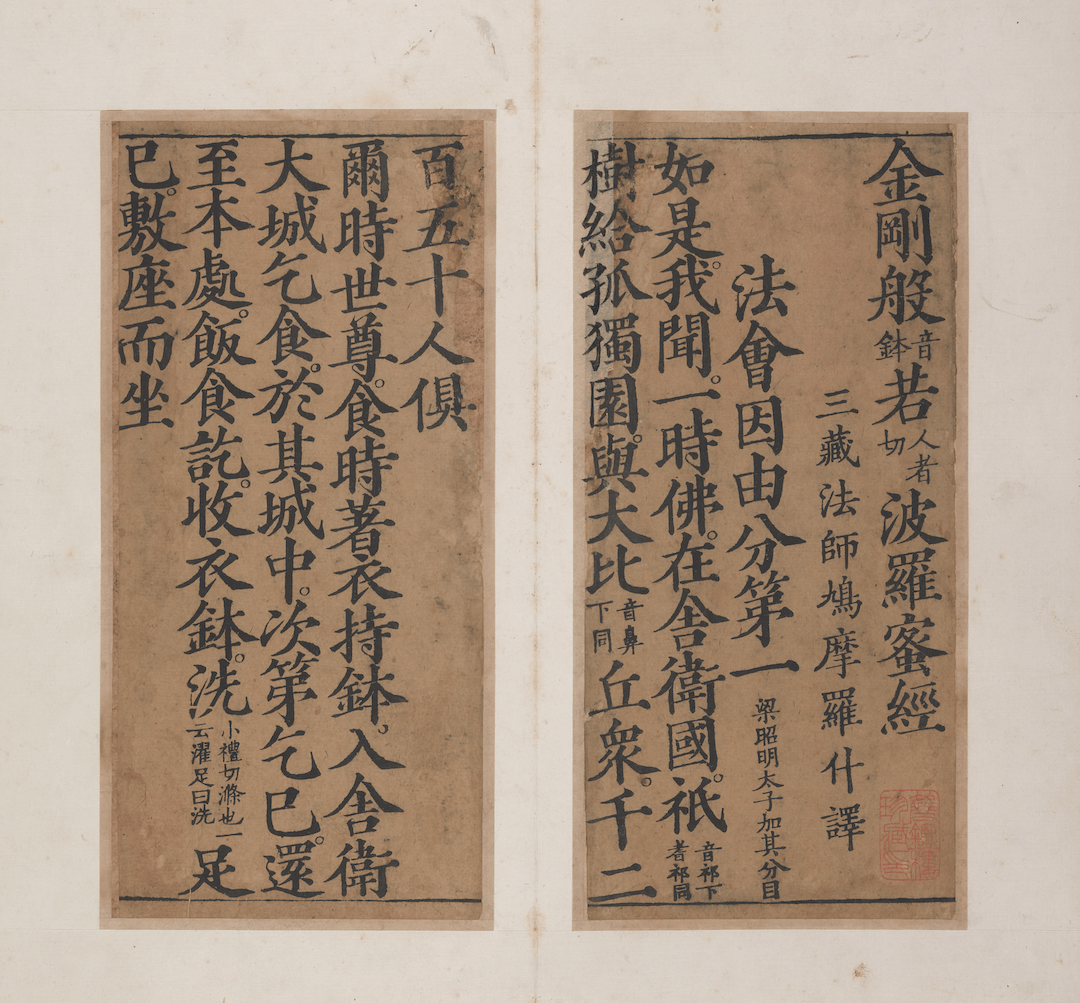 金剛般音鉢若人者切波羅蜜經
三藏法師鳩摩羅什譯
法會因由分第一梁昭明太子加其分目
如是。我聞。一時佛。在舍衛國。祇音祁下耆祁同
樹給孤獨園。與大比音鼻下同丘眾。千二
百五十人俱
爾時世尊。食時著衣持鉢。入舍衛
大城乞食。於其城中。次第乞已。還
至本處。飯食訖。收衣鉢。洗小禮切滌也一云濯足曰洗足
已。敷座而坐